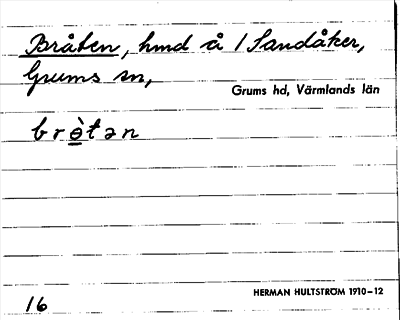 Bråten, hmd å 1 Sandåker,
Grums sn,
Grums hd, Värmlands län
brò̲tən
HERMAN HULTSTRÖM 1910–12
16